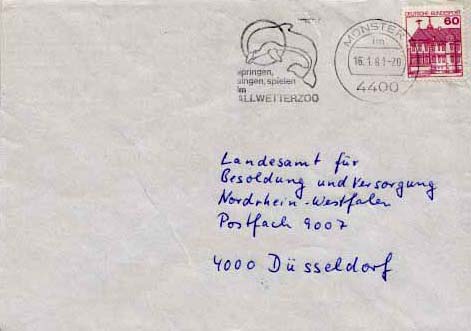 DEUTSCHE BUNDESPOST
60
MÜNSTER
im
16.1.81-20
4400
springen,
singen, spielen
im
ALLWETTERZOO
Landesamt für
Besoldung und Versorgung
Nordrhein-Westfalen
Postfach 9007
4000 Düsseldorf